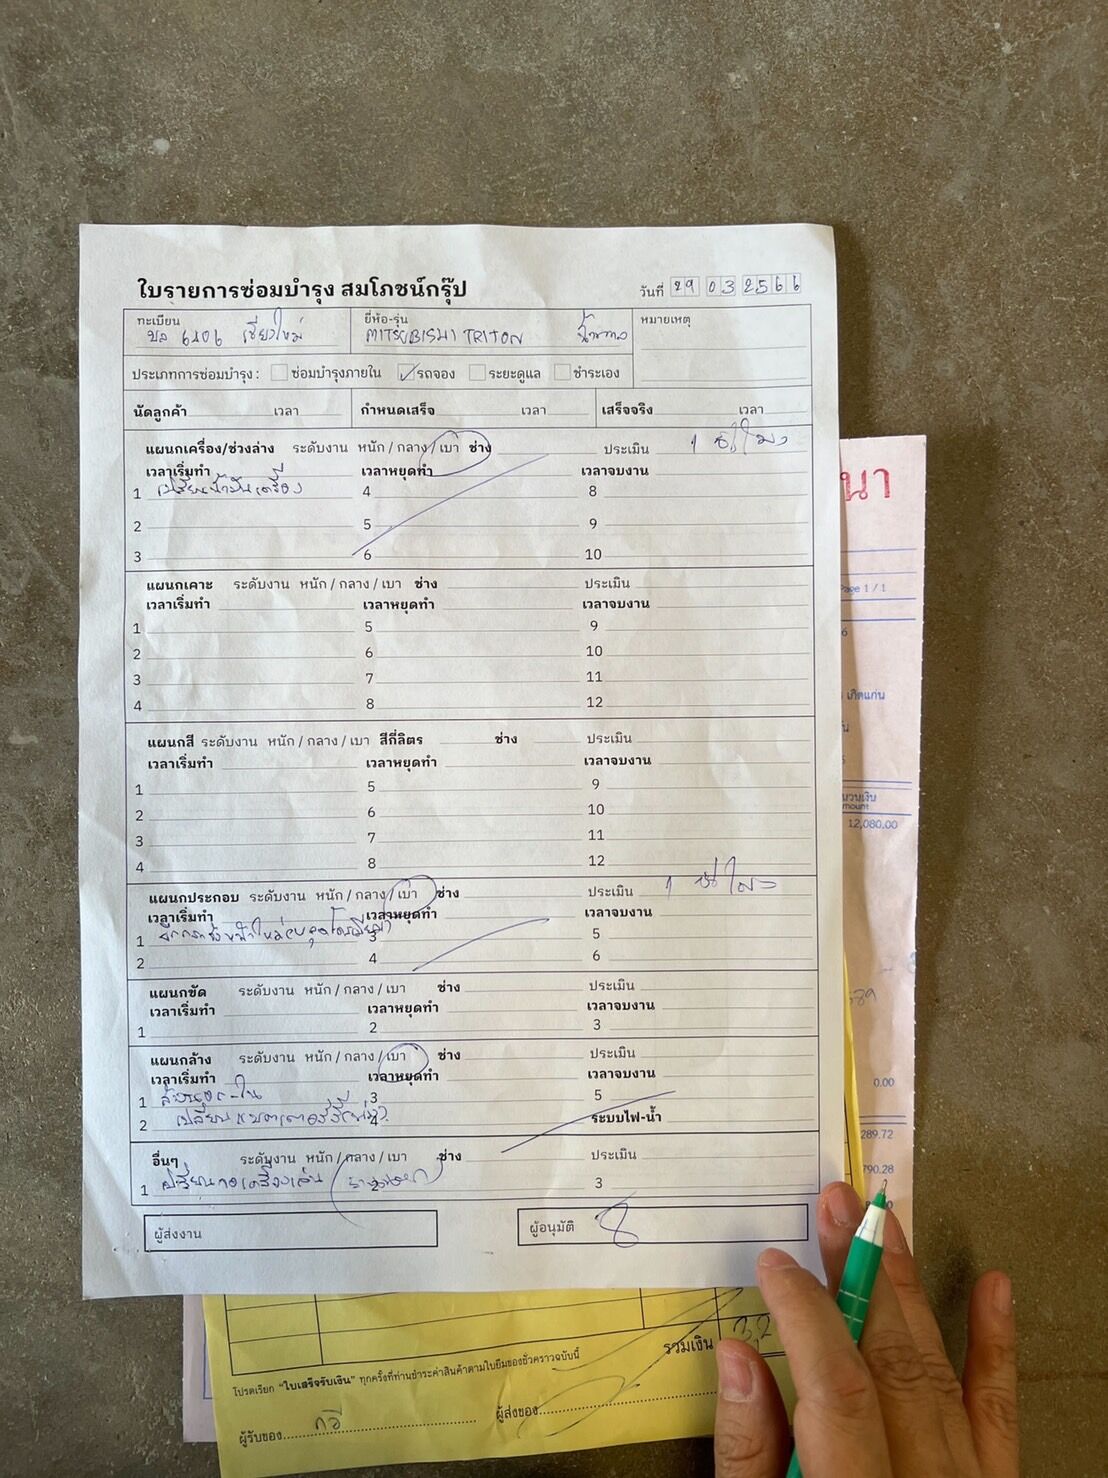 ใบรายการซ่อมบำรุง สมโภชน์กรุ๊ป
วันที่ 29 03 2566
ทะเบียน ยี่ห้อ-รุ่น หมายเหตุ
6406 เชียงใหม่ MITSUBISHI TRITON
ประเภทการซ่อมบำรุง : ซ่อมบำรุงภายใน รถจอง ระยะดูแล ชำระเอง
นัดลูกค้า เวลา กำหนดเสร็จ เวลา เสร็จจริง เวลา
แผนกเครื่อง/ช่วงล่าง ระดับงาน หนัก / กลาง / เบา ช่าง ประเมิน 1 ชั่วโมง
เวลาเริ่มทำ เวลาหยุดทำ เวลาจบงาน
1 เปลี่ยนน้ำมันเครื่อง 4 8
2 5 9
3 6 10
แผนกเคาะ ระดับงาน หนัก / กลาง / เบา ช่าง ประเมิน
เวลาเริ่มทำ เวลาหยุดทำ เวลาจบงาน
1 5 9
2 6 10
3 7 11
4 8 12
แผนกสี ระดับงาน หนัก / กลาง / เบา สีกี่ลิตร ช่าง ประเมิน
เวลาเริ่มทำ เวลาหยุดทำ เวลาจบงาน
1 5 9
2 6 10
3 7 11
4 8 12
แผนกประกอบ ระดับงาน หนัก / กลาง / เบา ช่าง ประเมิน 1 ชั่วโมง
เวลาเริ่มทำ เวลาหยุดทำ เวลาจบงาน
1 3 5
2 4 6
แผนกขัด ระดับงาน หนัก / กลาง / เบา ช่าง ประเมิน
เวลาเริ่มทำ เวลาหยุดทำ เวลาจบงาน
1 2 3
แผนกล้าง ระดับงาน หนัก / กลาง / เบา ช่าง ประเมิน
เวลาเริ่มทำ เวลาหยุดทำ เวลาจบงาน
1 ล้างนอก-ใน 3 5
2 เปลี่ยนแบตเตอรี่ 4 ระบบไฟ-น้ำ
อื่นๆ ระดับงาน หนัก / กลาง / เบา ช่าง ประเมิน
1 เปลี่ยนจอเครื่องเล่น 2 3
ผู้ส่งงาน ผู้อนุมัติ
นา
Page 1 / 1
เกิดแก่น
นวนเงิน
mount
12,080.00
0.00
289.72
790.28
รวมเงิน 3,2
โปรดเรียก "ใบเสร็จรับเงิน" ทุกครั้งที่ท่านชำระค่าสินค้าตามใบยืมของชั่วคราวฉบับนี้
ผู้รับของ ผู้ส่งของ